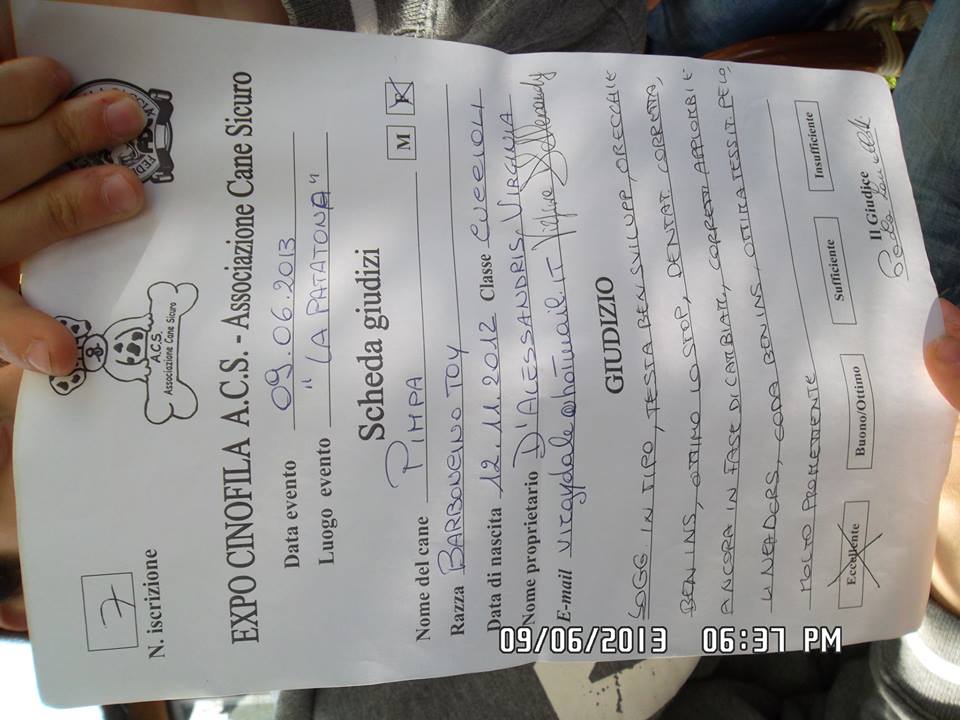 A.C.S.
Associazione Cane Sicuro
7
N. iscrizione
EXPO CINOFILA A.C.S. - Associazione Cane Sicuro
Data evento 09.06.2013
Luogo evento "LA PATATONA"
Scheda giudizi
Nome del cane PIMPA M F
Razza BARBONCINO TOY
Data di nascita 12.11.2012 Classe CUCCIOLI
Nome proprietario D'ALESSANDRIS VIRGINIA
E-mail virgydale@hotmail.it
GIUDIZIO
SOGG IN TIPO, TESTA BEN SVILUPP, ORECCHIE
BEN INS, OTTIMO LO STOP, DENTAT. CORRETTA,
ANCORA IN FASE DI CAMBIATE, CORRETTI APPIOMBI E
LINEA DORS, CODA BEN INS, OTTIMA TESSIT PELO,
MOLTO PROMETTENTE
Eccellente Buono/Ottimo Sufficiente Insufficiente
Il Giudice
09/06/2013 06:37 PM